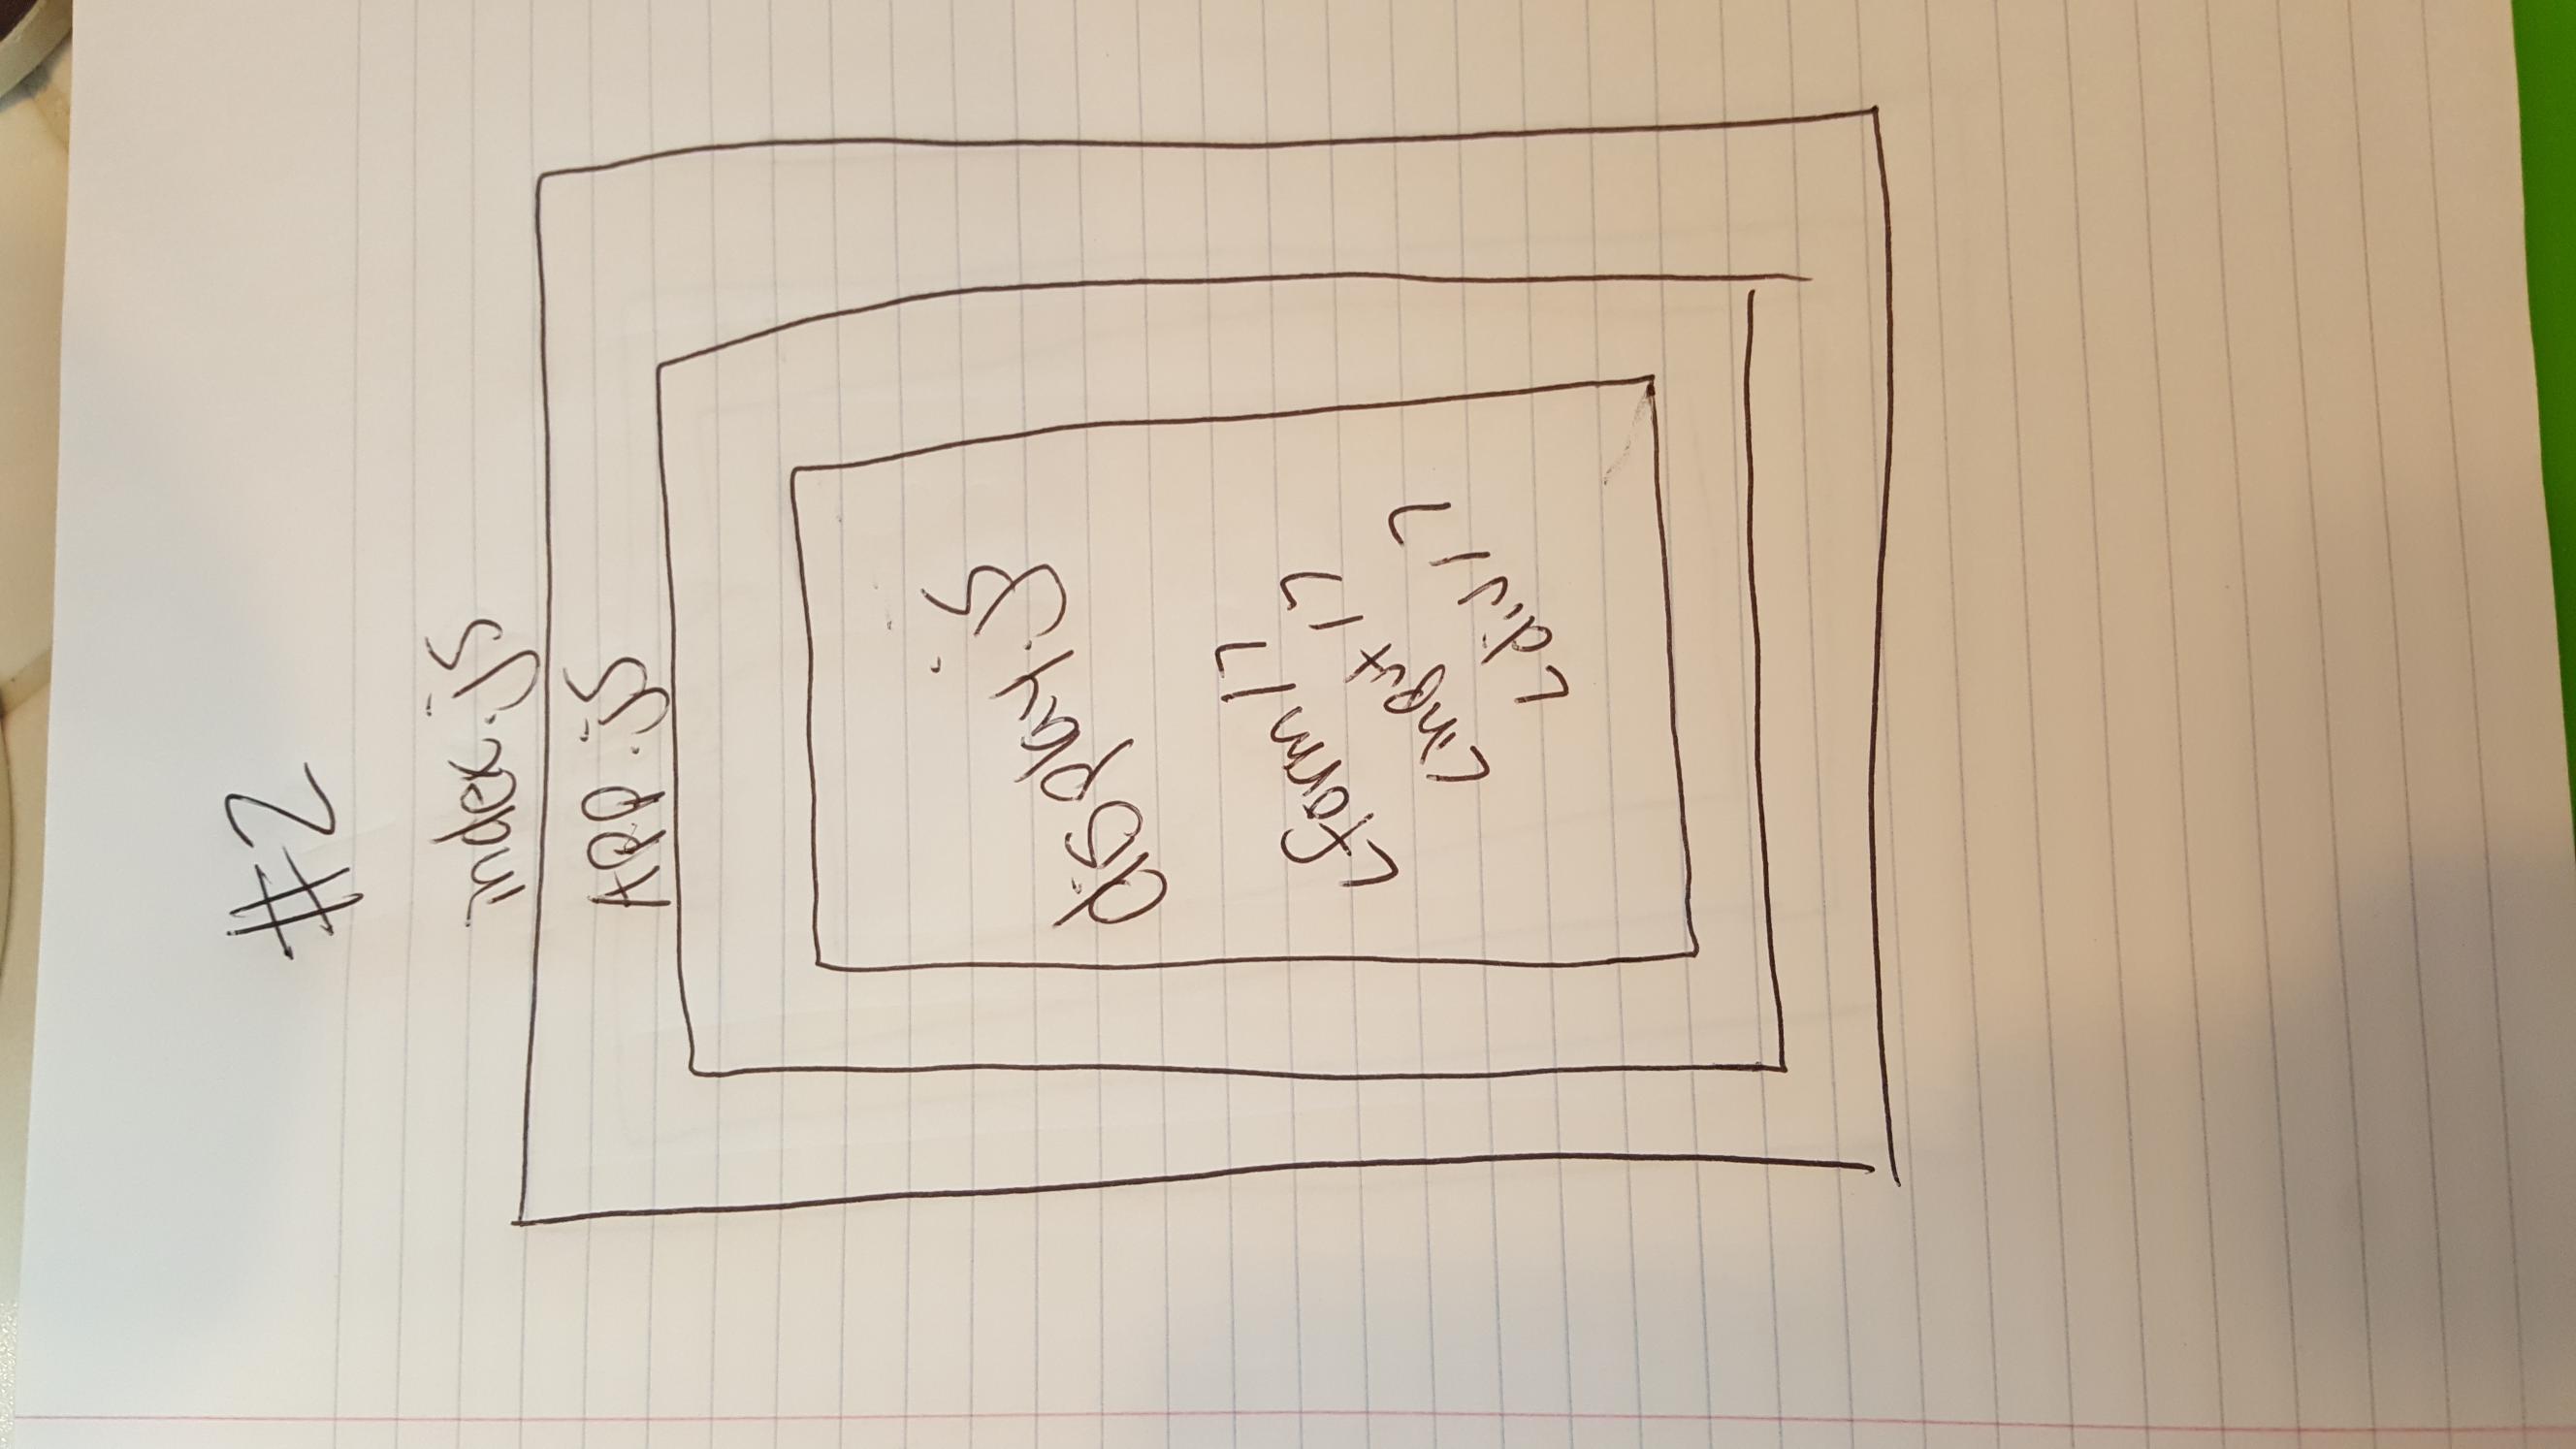 #2
index.js
APP.js
display.js
<form/>
<input/>
<div/>